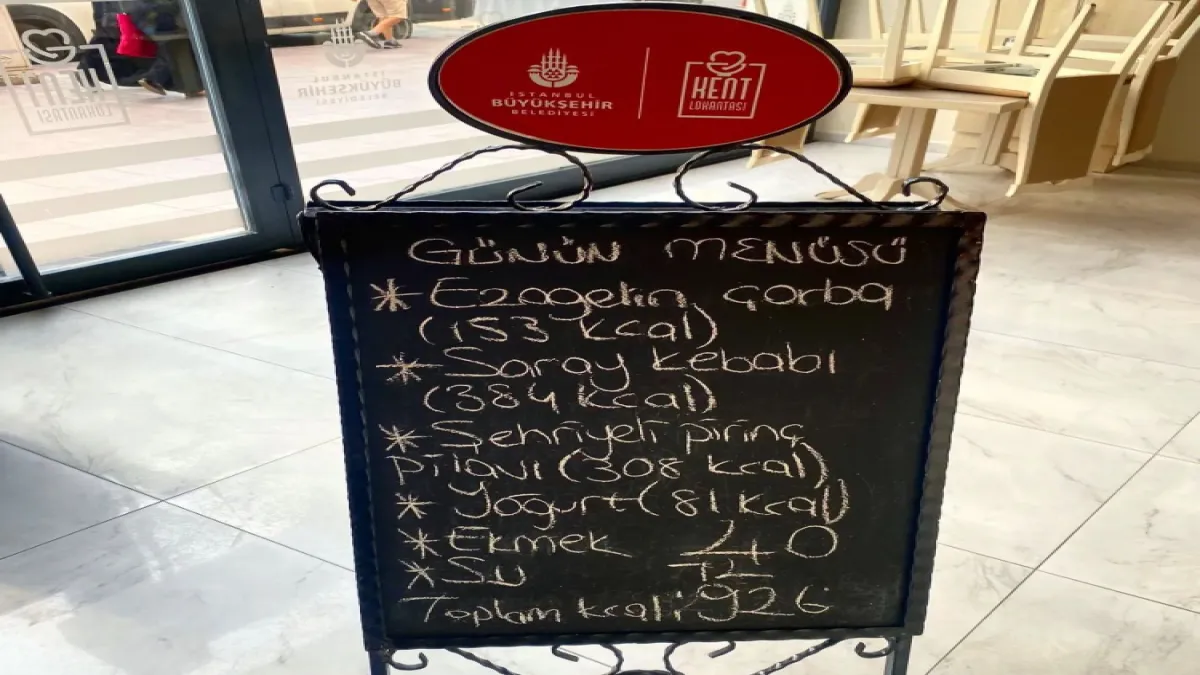 İSTANBUL
BÜYÜKŞEHİR
BELEDİYESİ
KENT
LOKANTASI
GÜNÜN MENÜSÜ
* Ezogelin çorba
(153 kcal)
* Saray kebabı
(384 kcal)
* Şehriyeli pirinç
pilavı (308 kcal)
* Yoğurt (81 kcal)
* Ekmek 40
* Su TL
Toplam kcal: 926